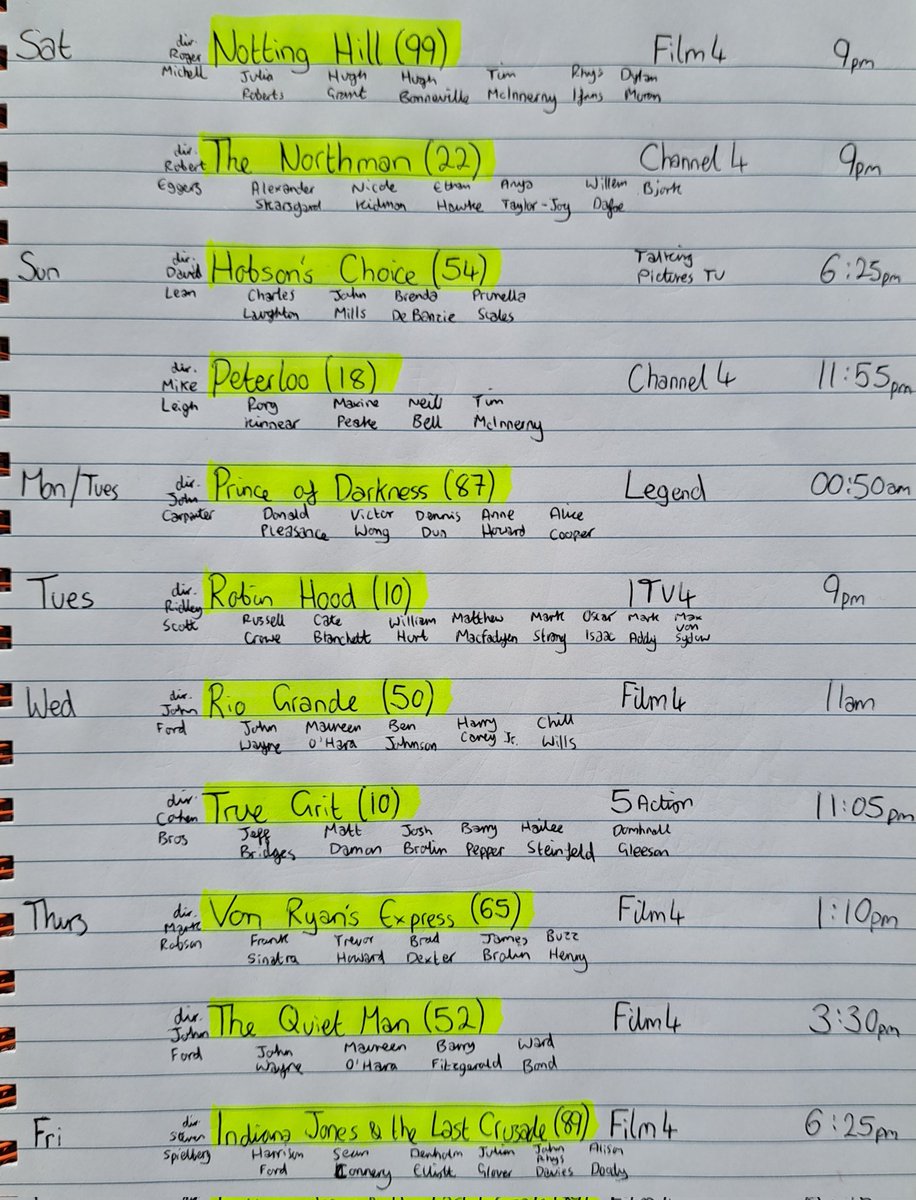 Sat dir. Notting Hill (99) Film4 9pm
Roger
Michell Julia Hugh Hugh Tim Rhys Dylan
Roberts Grant Bonneville McInnerny Ifans Moran
dir. The Northman (22) Channel 4 9pm
Robert
Eggers Alexander Nicole Ethan Anya Willem Bjork
Skarsgard Kidman Hawke Taylor-Joy Dafoe
Sun dir. Hobson's Choice (54) Talking Pictures TV 6:25pm
David
Lean Charles John Brenda Prunella
Laughton Mills De Banzie Scales
dir. Peterloo (18) Channel 4 11:55pm
Mike
Leigh Rory Maxine Neil Tim
Kinnear Peake Bell McInnerny
Mon/Tues dir. Prince of Darkness (87) Legend 00:50am
John
Carpenter Donald Victor Dennis Anne Alice
Pleasance Wong Dun Howard Cooper
Tues dir. Robin Hood (10) ITV4 9pm
Ridley
Scott Russell Cate William Matthew Mark Oscar Mark Max
von
Crowe Blanchett Hurt Macfadyen Strong Isaac Addy Sydow
Wed dir. Rio Grande (50) Film4 11am
John
Ford John Maureen Ben Harry Chill
Wayne O'Hara Johnson Carey Jr. Wills
dir. True Grit (10) 5 Action 11:05pm
Cohen
Bros Jeff Matt Josh Barry Hailee Domhnall
Bridges Damon Brolin Pepper Steinfeld Gleeson
Thurs dir. Von Ryan's Express (65) Film4 1:10pm
Mark
Robson Frank Trevor Brad James Buzz
Sinatra Howard Dexter Brolin Henry
dir. The Quiet Man (52) Film4 3:30pm
John
Ford John Maureen Barry Ward
Wayne O'Hara Fitzgerald Bond
Fri dir. Indiana Jones & the Last Crusade (89) Film4 6:25pm
Steven
Spielberg Harrison Sean Denholm Julian John Alison
Rhys
Ford Connery Elliott Glover Davies Doody